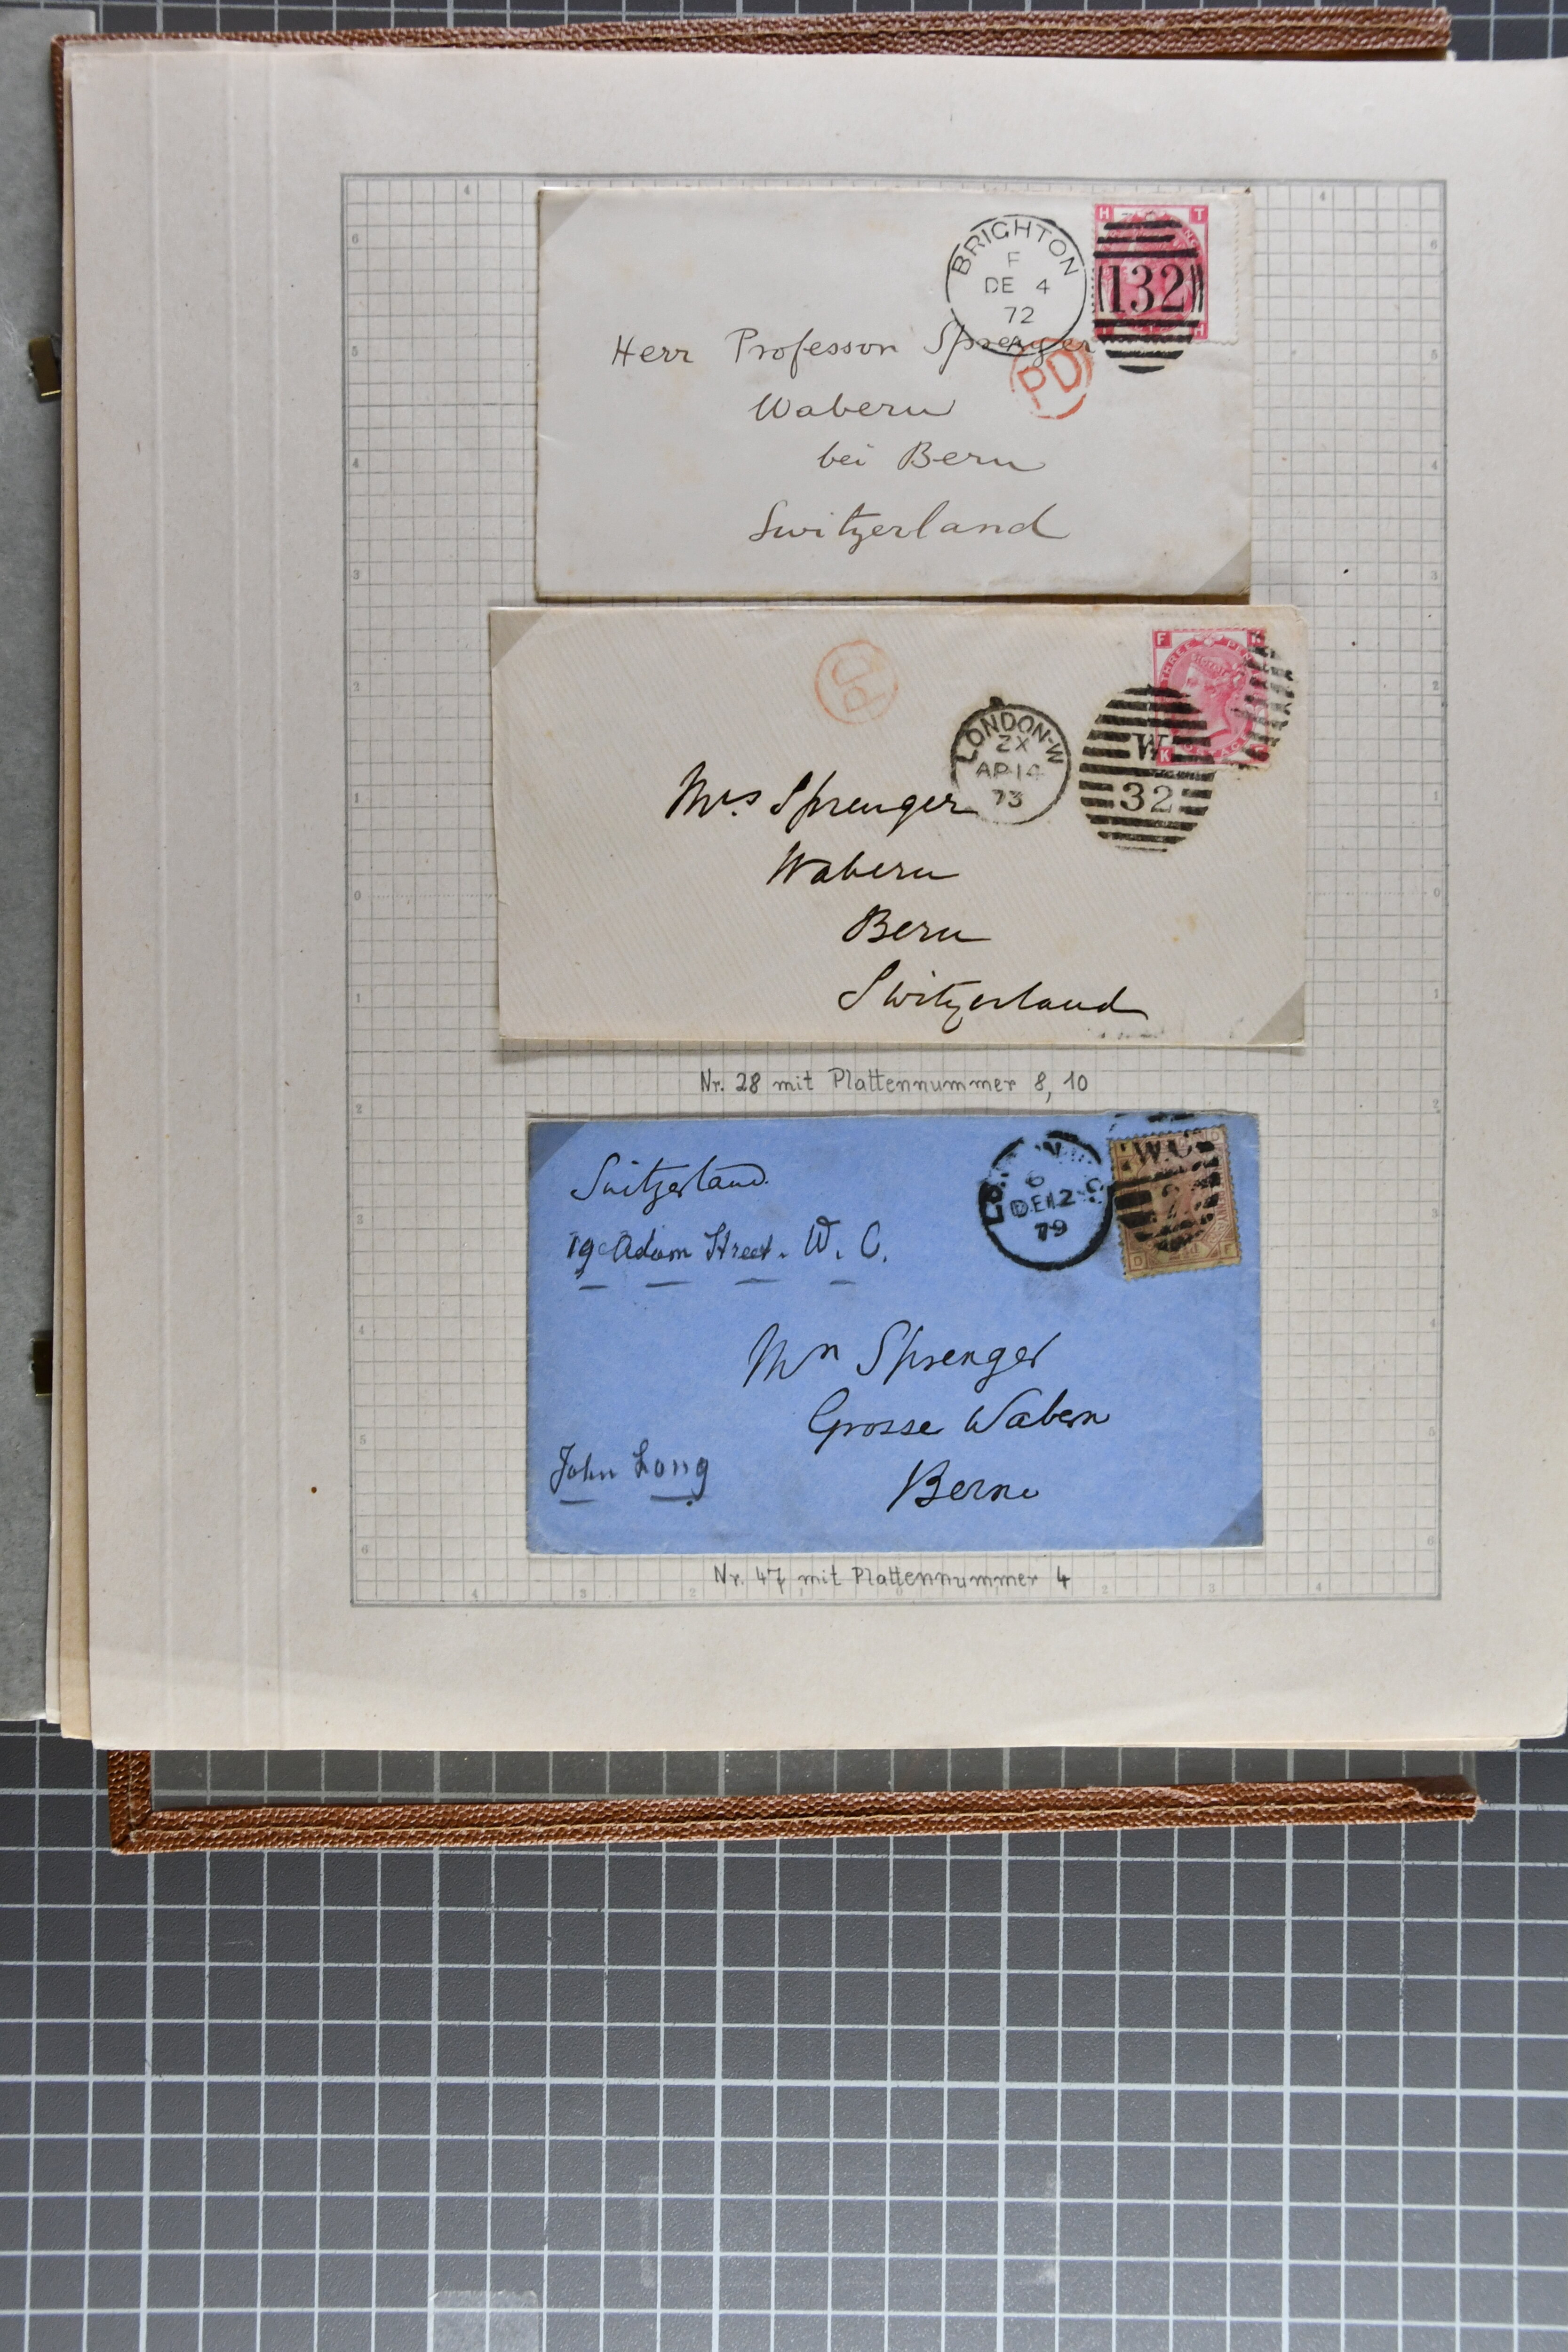 BRIGHTON
F
DE 4
72
H T
132
H
Herr Professor Sprenger
PD
Wabern
bei Bern
Switzerland
PD
F K
THREE PEN
LONDON-W
ZX
AP 14
73
W
32
K F
Mrs. Sprenger
Wabern
Bern
Switzerland
Nr. 28 mit Plattennummer 8, 10
Switzerland.
19 Adam Street. W. C.
6
DE 12
79
W.C
2
D F
Mrs Sprenger
Grosse Wabern
Berne
John Long
Nr. 47 mit Plattennummer 4